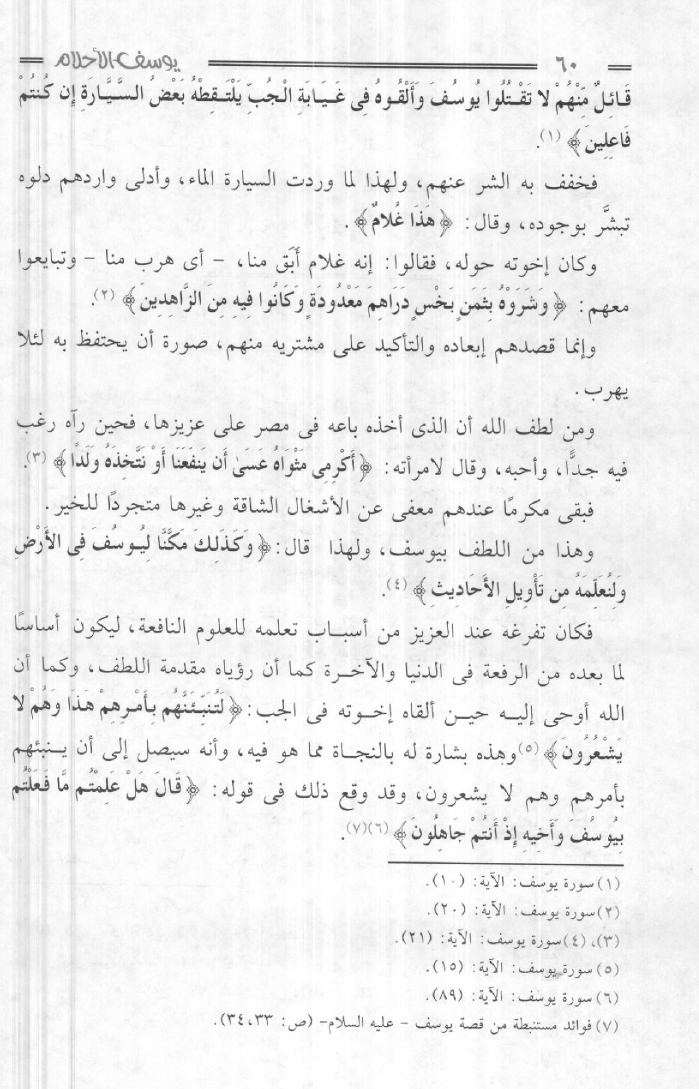 ٦٠ يوسف الأحلام
قَائِلٌ مِّنْهُمْ لا تَقْتُلُوا يُوسُفَ وَأَلْقُوهُ فِى غَيَابَةِ الْجُبِّ يَلْتَقِطْهُ بَعْضُ السَّيَّارَةِ إِن كُنتُمْ
فَاعِلِينَ﴾ (١).
فخفف به الشر عنهم، ولهذا لما وردت السيارة الماء، وأدلى واردهم دلوه
تبشَّر بوجوده، وقال: ﴿هَذَا غُلامٌ﴾.
وكان إخوته حوله، فقالوا: إنه غلام أَبَق منا، – أى هرب منا – وتبايعوا
معهم: ﴿وَشَرَوْهُ بِثَمَنٍ بَخْسٍ دَرَاهِمَ مَعْدُودَةٍ وَكَانُوا فِيهِ مِنَ الزَّاهِدِينَ﴾ (٢).
وإنما قصدهم إبعاده والتأكيد على مشتريه منهم، صورة أن يحتفظ به لئلا
يهرب.
ومن لطف الله أن الذى أخذه باعه فى مصر على عزيزها، فحين رآه رغب
فيه جدًّا، وأحبه، وقال لامرأته: ﴿أَكْرِمِى مَثْوَاهُ عَسَىٰ أَن يَنفَعَنَا أَوْ نَتَّخِذَهُ وَلَدًا﴾ (٣).
فبقى مكرمًا عندهم معفى عن الأشغال الشاقة وغيرها متجردًا للخير.
وهذا من اللطف بيوسف، ولهذا قال: ﴿وَكَذَلِكَ مَكَّنَّا لِيُوسُفَ فِى الأَرْضِ
وَلِنُعَلِّمَهُ مِن تَأْوِيلِ الأَحَادِيثِ﴾ (٤).
فكان تفرغه عند العزيز من أسباب تعلمه للعلوم النافعة، ليكون أساسًا
لما بعده من الرفعة فى الدنيا والآخرة كما أن رؤياه مقدمة اللطف، وكما أن
الله أوحى إليه حين ألقاه إخوته فى الجب: ﴿لَتُنَبِّئَنَّهُم بِأَمْرِهِمْ هَذَا وَهُمْ لا
يَشْعُرُونَ﴾ (٥) وهذه بشارة له بالنجاة مما هو فيه، وأنه سيصل إلى أن ينبئهم
بأمرهم وهم لا يشعرون، وقد وقع ذلك فى قوله: ﴿قَالَ هَلْ عَلِمْتُم مَّا فَعَلْتُم
بِيُوسُفَ وَأَخِيهِ إِذْ أَنتُمْ جَاهِلُونَ﴾ (٦)(٧).
(١) سورة يوسف: الآية: (١٠).
(٢) سورة يوسف: الآية: (٢٠).
(٣)، (٤) سورة يوسف: الآية: (٢١).
(٥) سورة يوسف: الآية: (١٥).
(٦) سورة يوسف: الآية: (٨٩).
(٧) فوائد مستنبطة من قصة يوسف – عليه السلام– (ص: ٣٣، ٣٤).